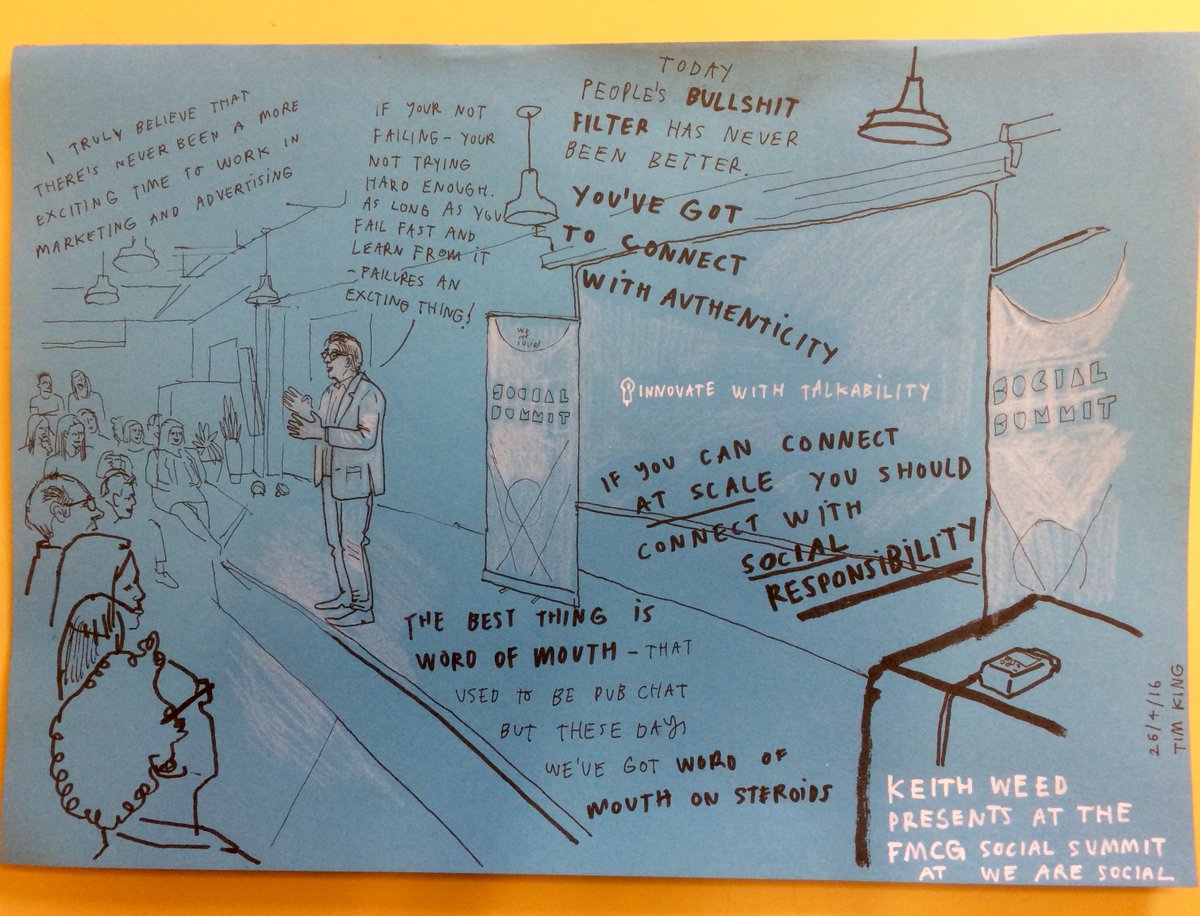 I TRULY BELIEVE THAT
THERE'S NEVER BEEN A MORE
EXCITING TIME TO WORK IN
MARKETING AND ADVERTISING
IF YOUR NOT
FAILING - YOUR
NOT TRYING
HARD ENOUGH.
AS LONG AS YOU
FAIL FAST AND
LEARN FROM IT
- FAILURES AN
EXCTING THING!
TODAY
PEOPLE'S BULLSHIT
FILTER HAS NEVER
BEEN BETTER.
YOU'VE GOT
TO CONNECT
WITH AUTHENTICITY
we
are
social
SOCIAL
SUMMIT
INNOVATE WITH TALKABILITY
SOCIAL
SUMMIT
IF YOU CAN CONNECT
AT SCALE YOU SHOULD
CONNECT WITH
SOCIAL
RESPONSIBILITY
THE BEST THING IS
WORD OF MOUTH - THAT
USED TO BE PUB CHAT
BUT THESE DAYS
WE'VE GOT WORD OF
MOUTH ON STEROIDS
26/4/16
TIM KING
KEITH WEED
PRESENTS AT THE
FMCG SOCIAL SUMMIT
AT WE ARE SOCIAL